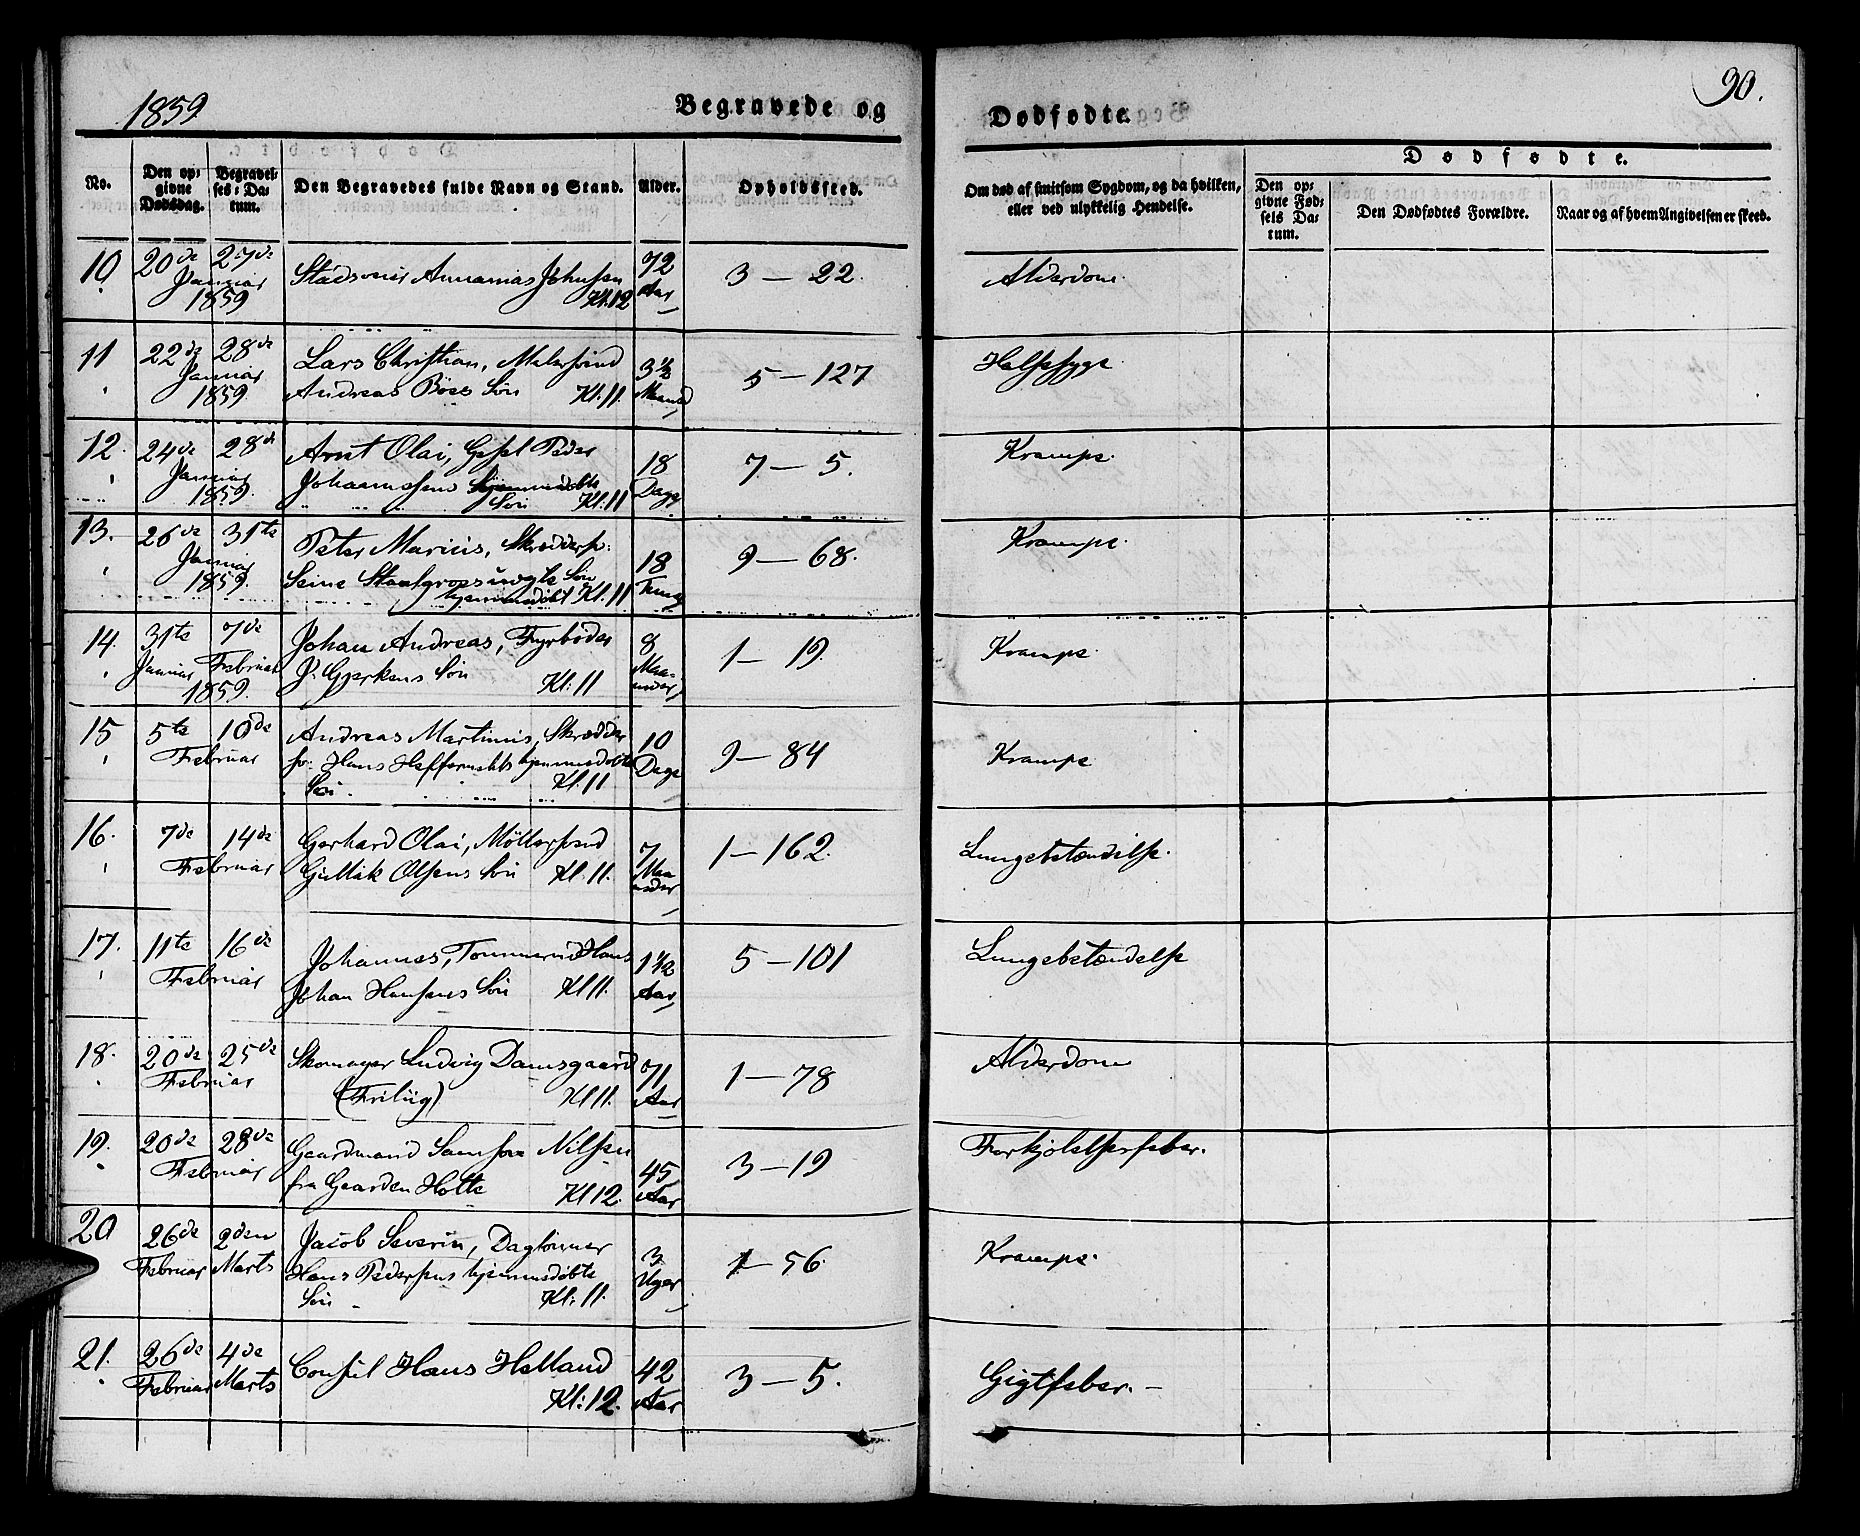 1859
Begravede og
Dødfødte.
90.
No.
Den op-
givne
Dødsdag.
Begravel-
ses-Da-
tum.
Den Begravedes fulde Navn og Stand.
Alder.
Opholdssted.
Om død af smitsom Sygdom, og da hvilken,
eller ved ulykkelig Hendelse.
Dødfødte.
Den op-
givne Fød-
sels Da-
tum.
Den Dødfødtes Forældre.
Naar og af hvem Angivelsen er skeed.
10 20de 27de Januar 1859
Johnsen Kl: 12
72 Aar
3 — 22.
Alderdom.
11 22de 28de Januar 1859
Lars Christian,
Andreas Böes Sön Kl: 11.
3½ Maaned
5 — 127
Halssyge
12. 24de 28de Januar 1859.
Arnt Olai, Peder
Johannesens Sön Kl: 11
18 Dage
7 — 5.
Krampe.
13. 26de 31te Januar 1859.
Peter Marius,
Sön
hjemmedöbt Kl: 11
18
9 — 68.
Krampe.
14. 31te Januar 7de Februar 1859.
Johan Andreas, Fyrböder
J. Gjerkens Sön Kl: 11
8 Maa-
neder
1 — 19.
Krampe.
15 5te 10de Februar
Andreas Martinus, Skrædder
Hans hjemmedöbte
Sön. Kl: 11
10 Dage
9 — 84
Krampe
16. 7de 14de Februar
Gerhard Olai, Möllersvend
Gullik Olsens Sön Kl: 11.
7 Maa-
neder
1 — 162.
Lungebetændelse.
17. 11te 16de Februar
Johannes, Tömmermd Hans
Johan Hansens Sön Kl 11.
1½ Aar
5 — 101
Lungebetændelse
18. 20de 25de Februar
Skomager Ludvig Damsgaard
Kl 11.
71 Aar
1 — 78
Alderdom
19. 20de 28de Februar
Gaardmand Samson Nilsen
fra Gaarden Holte Kl 12.
45 Aar
3 — 19
Forkjölelsesfeber.
20 26de Februar 2den Marts
Jacob Severin, Daglönner
Hans Pedersens hjemmedöbte
Sön. Kl: 11.
3 Uger
1 — 56.
Krampe.
21. 26de Februar 4de Marts
Consul Hans Helland
Kl: 12.
42 Aar
3 — 5.
Gigtfeber. —